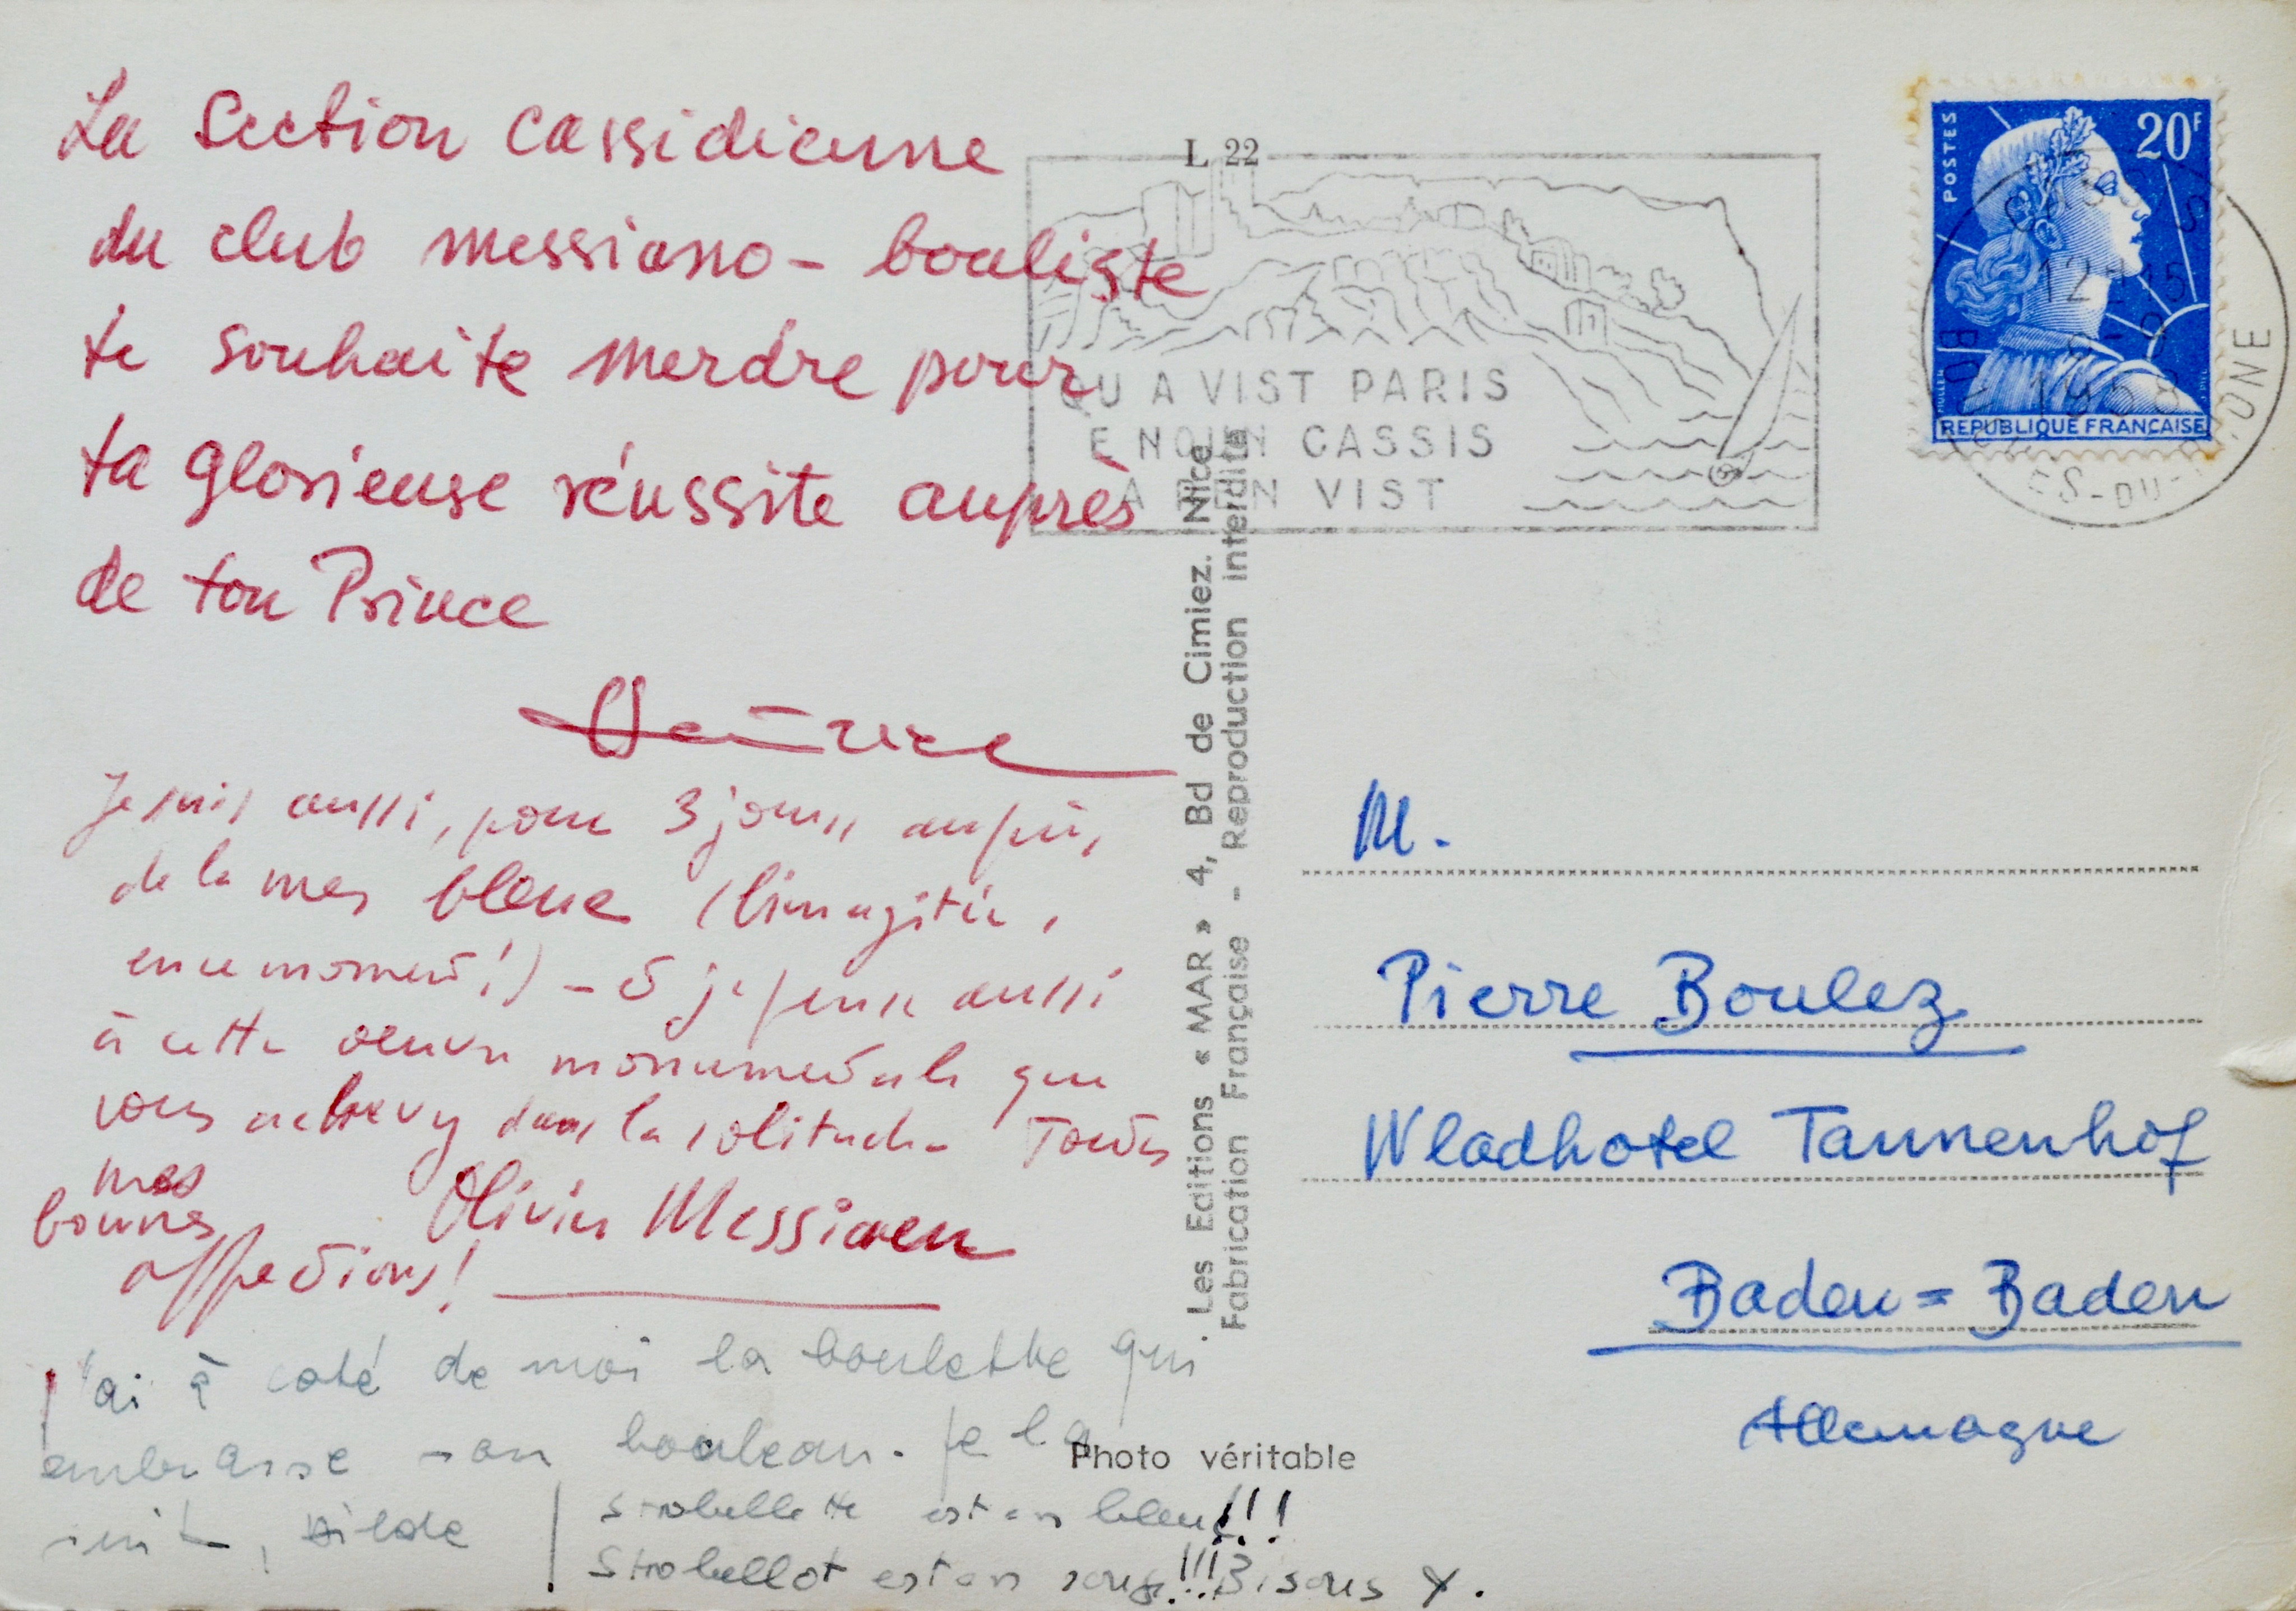 La Section cassidienne
du club messiano-bouliste
te souhaite merdre pour
ta glorieuse réussite auprès
de ton Prince
Je suis aussi, pour 3 jours auprès
de la mer bleue (bien agitée,
en ce moment!) - et je pense aussi
à cette œuvre monumentale que
vous achevez dans la solitude. Toutes
mes
bonnes
affections!
Olivier Messiaen
J'ai à coté de moi la boulette qui
embrasse son bouleau. Je la
suit, Hilde
Strobellette est en bleu!!!
Strobellot est en rouge!!! Bisous
L 22
QU A VIST PARIS
E NOUN CASSIS
A REN VIST
POSTES
20F
MULLER
REPUBLIQUE FRANÇAISE
CASSIS
12H15
9-9
1958
BOUCHES-DU-RHONE
Les Editions « MAR » 4, Bd de Cimiez. Nice
Fabrication Française - Reproduction interdite
M.
Pierre Boulez
Wladhotel Tannenhof
Baden=Baden
Allemagne
Photo véritable